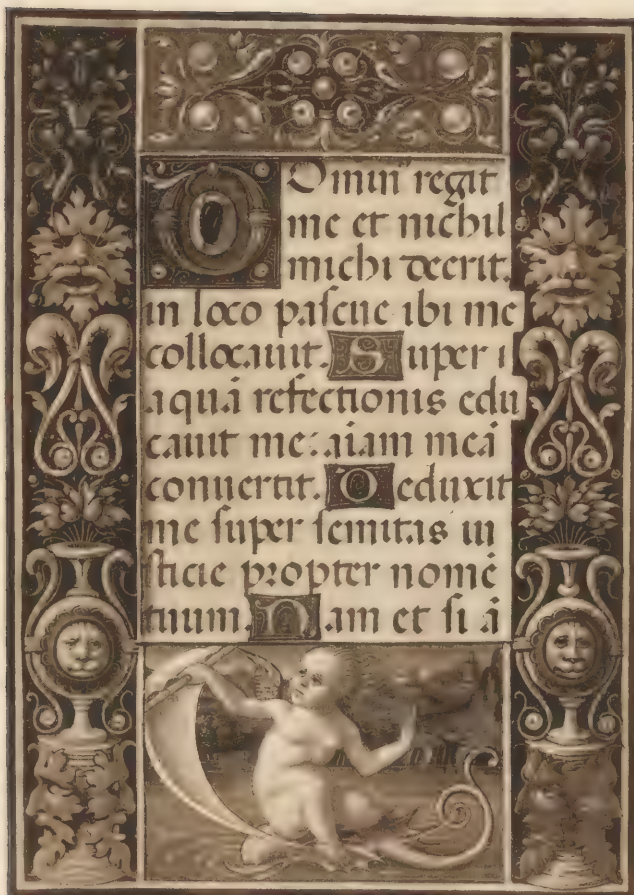 DOmin⁹ regit
me et nichil
michi deerit.
in loco pascue ibi me
collocauit. Super
aquā refectionis edu
cauit me: aīam meā
conuertit. Deduxit
me super semitas iu
sticie propter nomē
tuum. Nam et si ā